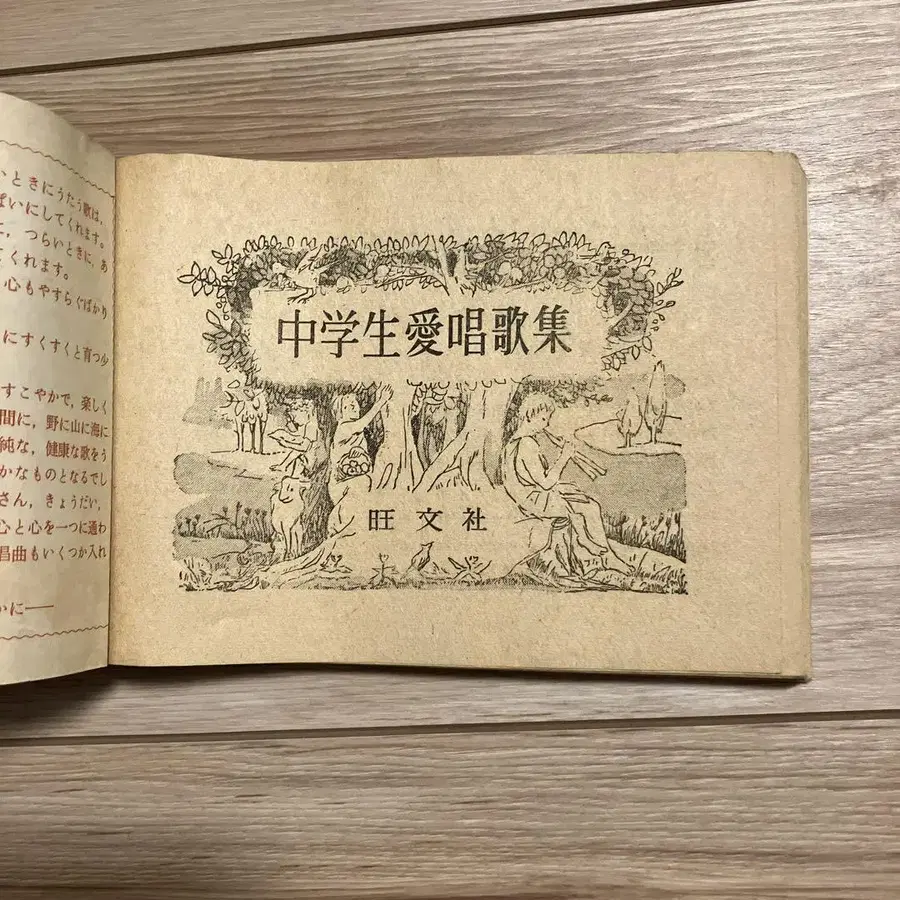 いときにうたう歌は、
ぱいにしてくれます。
に，つらいときに，あ
てくれます。
心もやすらぐばかり
にすくすくと育つ少
すこやかで，楽しく
間に，野に山に海に
純な，健康な歌をう
かなものとなるでし
さん，きょうだい，
心と心を一つに通わ
唱曲もいくつか入れ
かに——
中学生愛唱歌集
旺文社